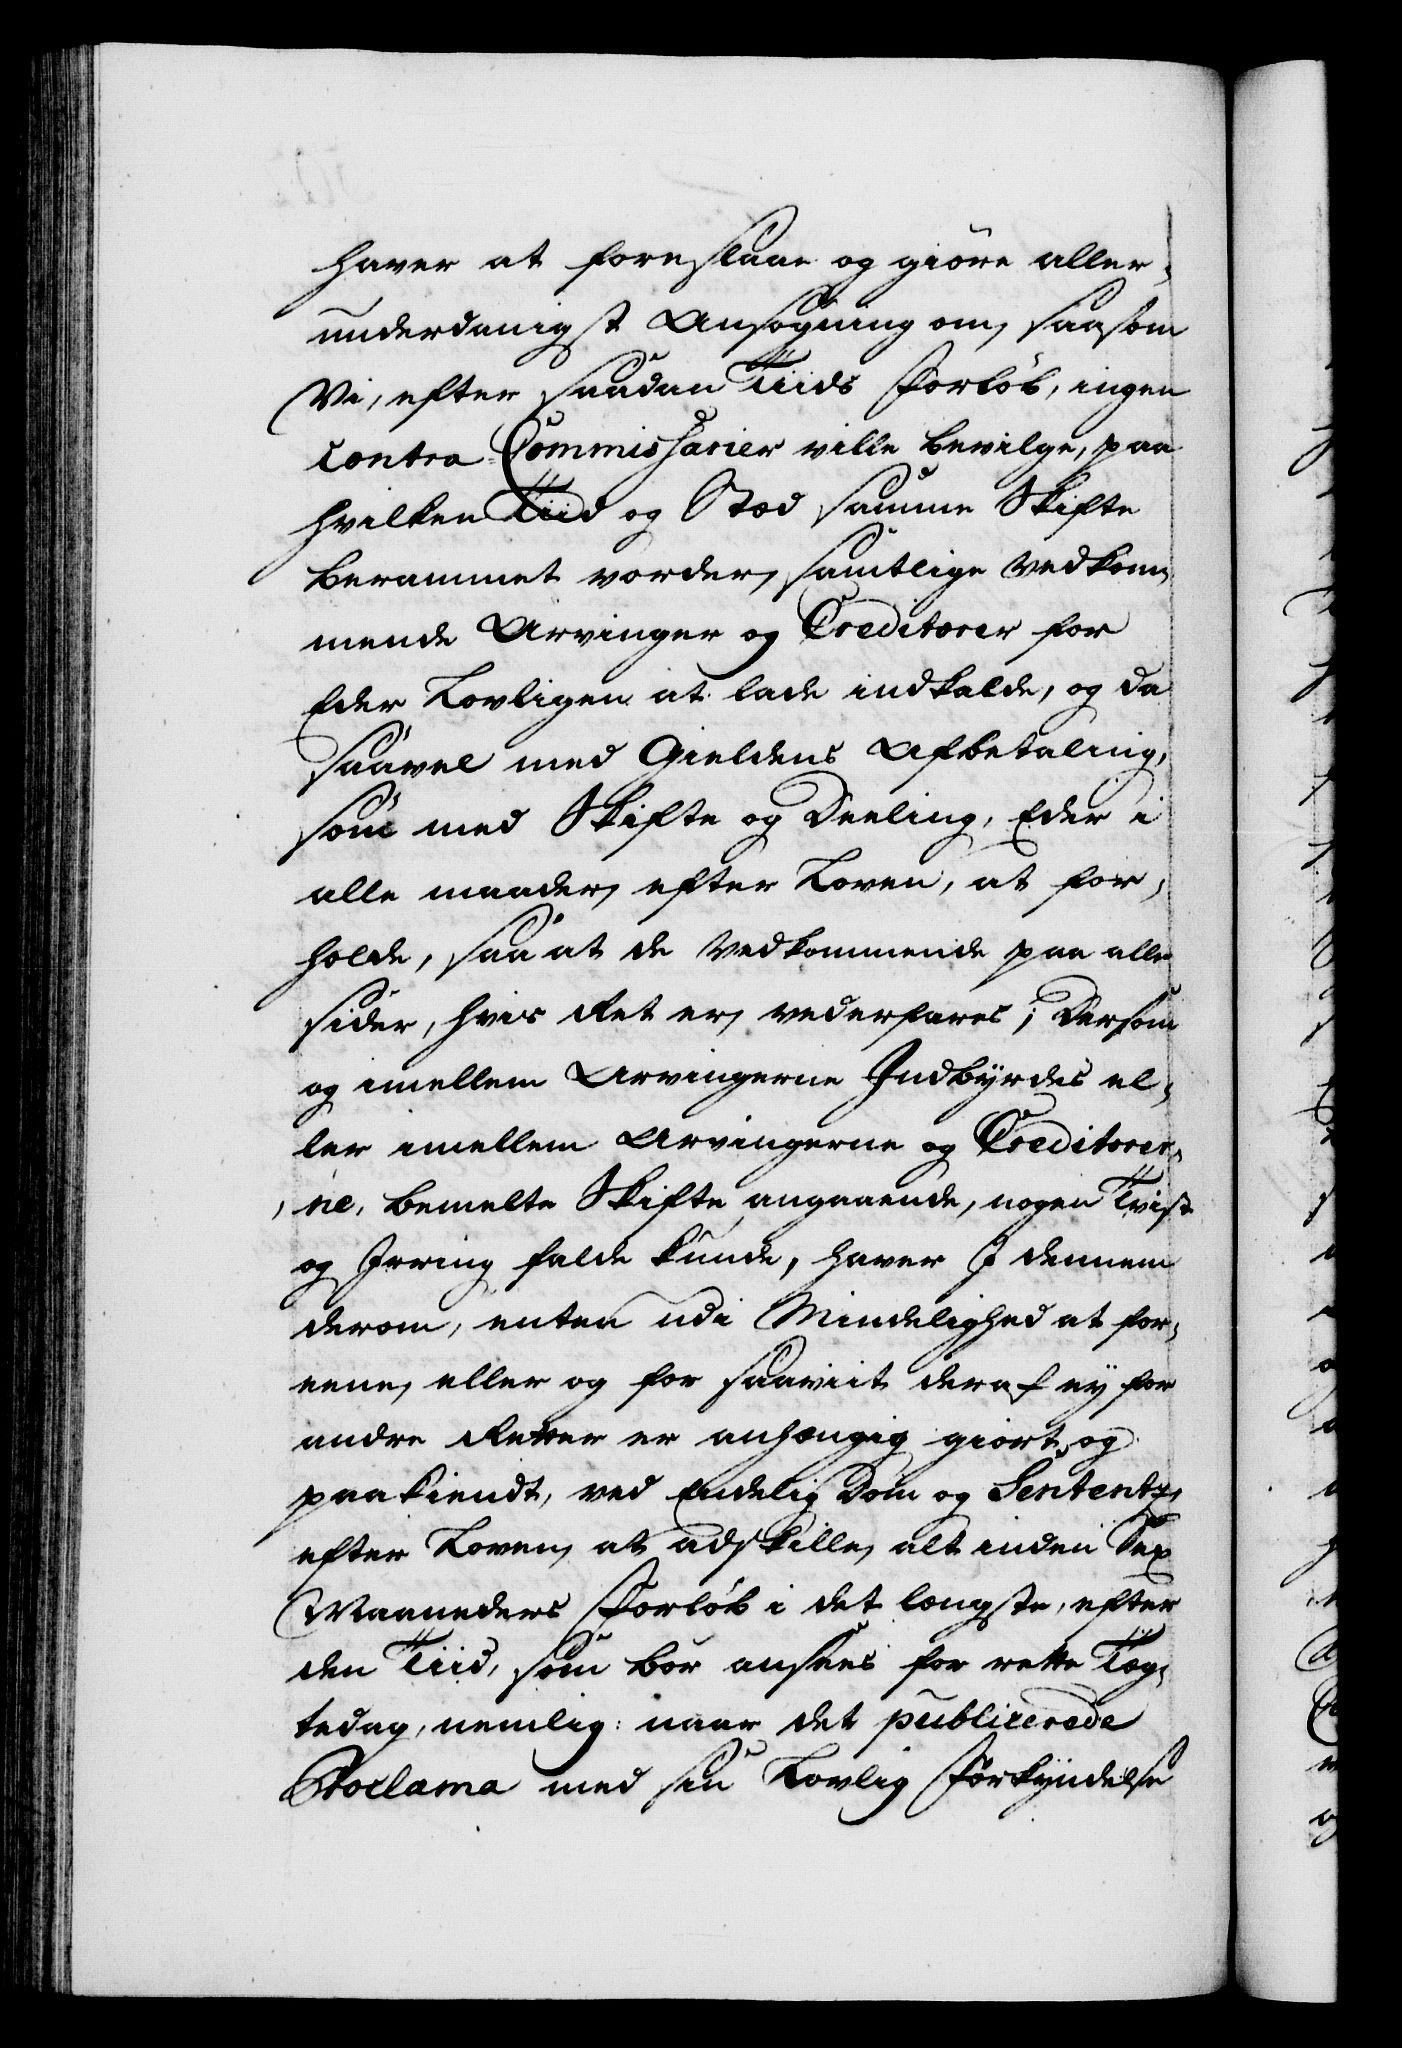 haver at foreslaae og giöre aller-
underdanigst Ansøgning om, saasom
Vi, efter saadan Tiids Forløb, ingen
Contra-Commissarier ville bevilge, paa
hvilken Tiid og Stæd samme Skifte
berammet vorder, samtlige Vedkom-
mende Arvinger og Creditorer for
Eder Lovligen at lade indkalde, og da
saavel med Gieldens Afbetaling,
som med Skifte og Deeling, Eder i
alle maader, efter Loven, at for-
holde, saa at de Vedkommende paa alle
sider, hvis Ret er, vederfares; Dersom
og imellem Arvingerne Indbyrdes el-
ler imellem Arvingerne og Creditorer-
ne, bemelte Skifte angaaende, nogen Tvist
og Irring falde kunde, haver I dennem
derom, enten udi Mindelighed at for-
eene, eller og for saaviit deraf ey for
andre Retter er anhængig giort, og
paakiendt, ved Endelig Dom og Sententz,
efter Loven, at adskille, alt inden Sex
Maaneders Forløb i det længste, efter
den Tiid, som bör ansees for rette Tæg-
tedag, nemlig: naar det publicerede
Proclama med sin Lovlig Forkyndelse